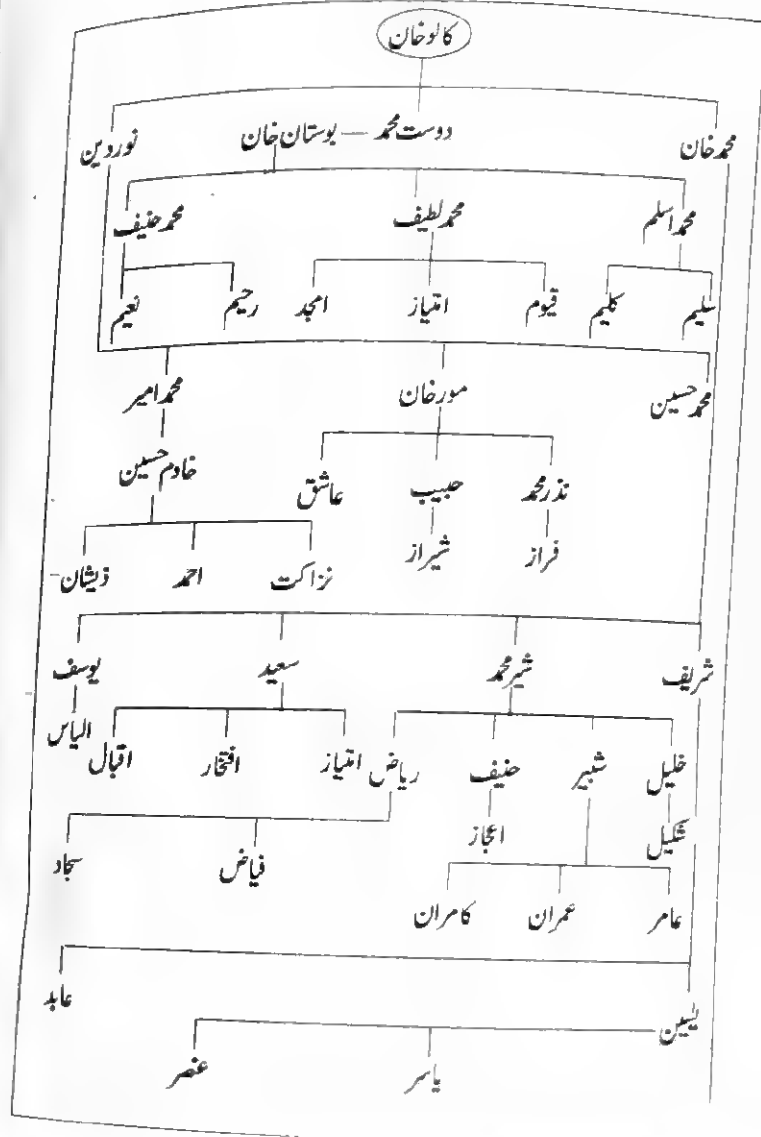 کالوخان
محمدخان دوست محمد — بوستان خان نوردین
محمداسلم محمدلطیف محمدحنیف
سلیم کلیم قیوم امتیاز امجد رحیم نعیم
محمدحسین مورخان محمدامیر
خادم حسین
نذرمحمد حبیب عاشق
فراز شیراز نزاکت احمد ذیشان
شریف شیرمحمد سعید یوسف
خلیل شبیر حنیف ریاض امتیاز افتخار اقبال الیاس
شکیل اعجاز فیاض سجاد
عامر عمران کامران
عابد
یٰسین
یاسر عنصر